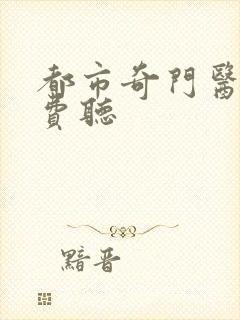 都市奇門醫
費聽
黯晋